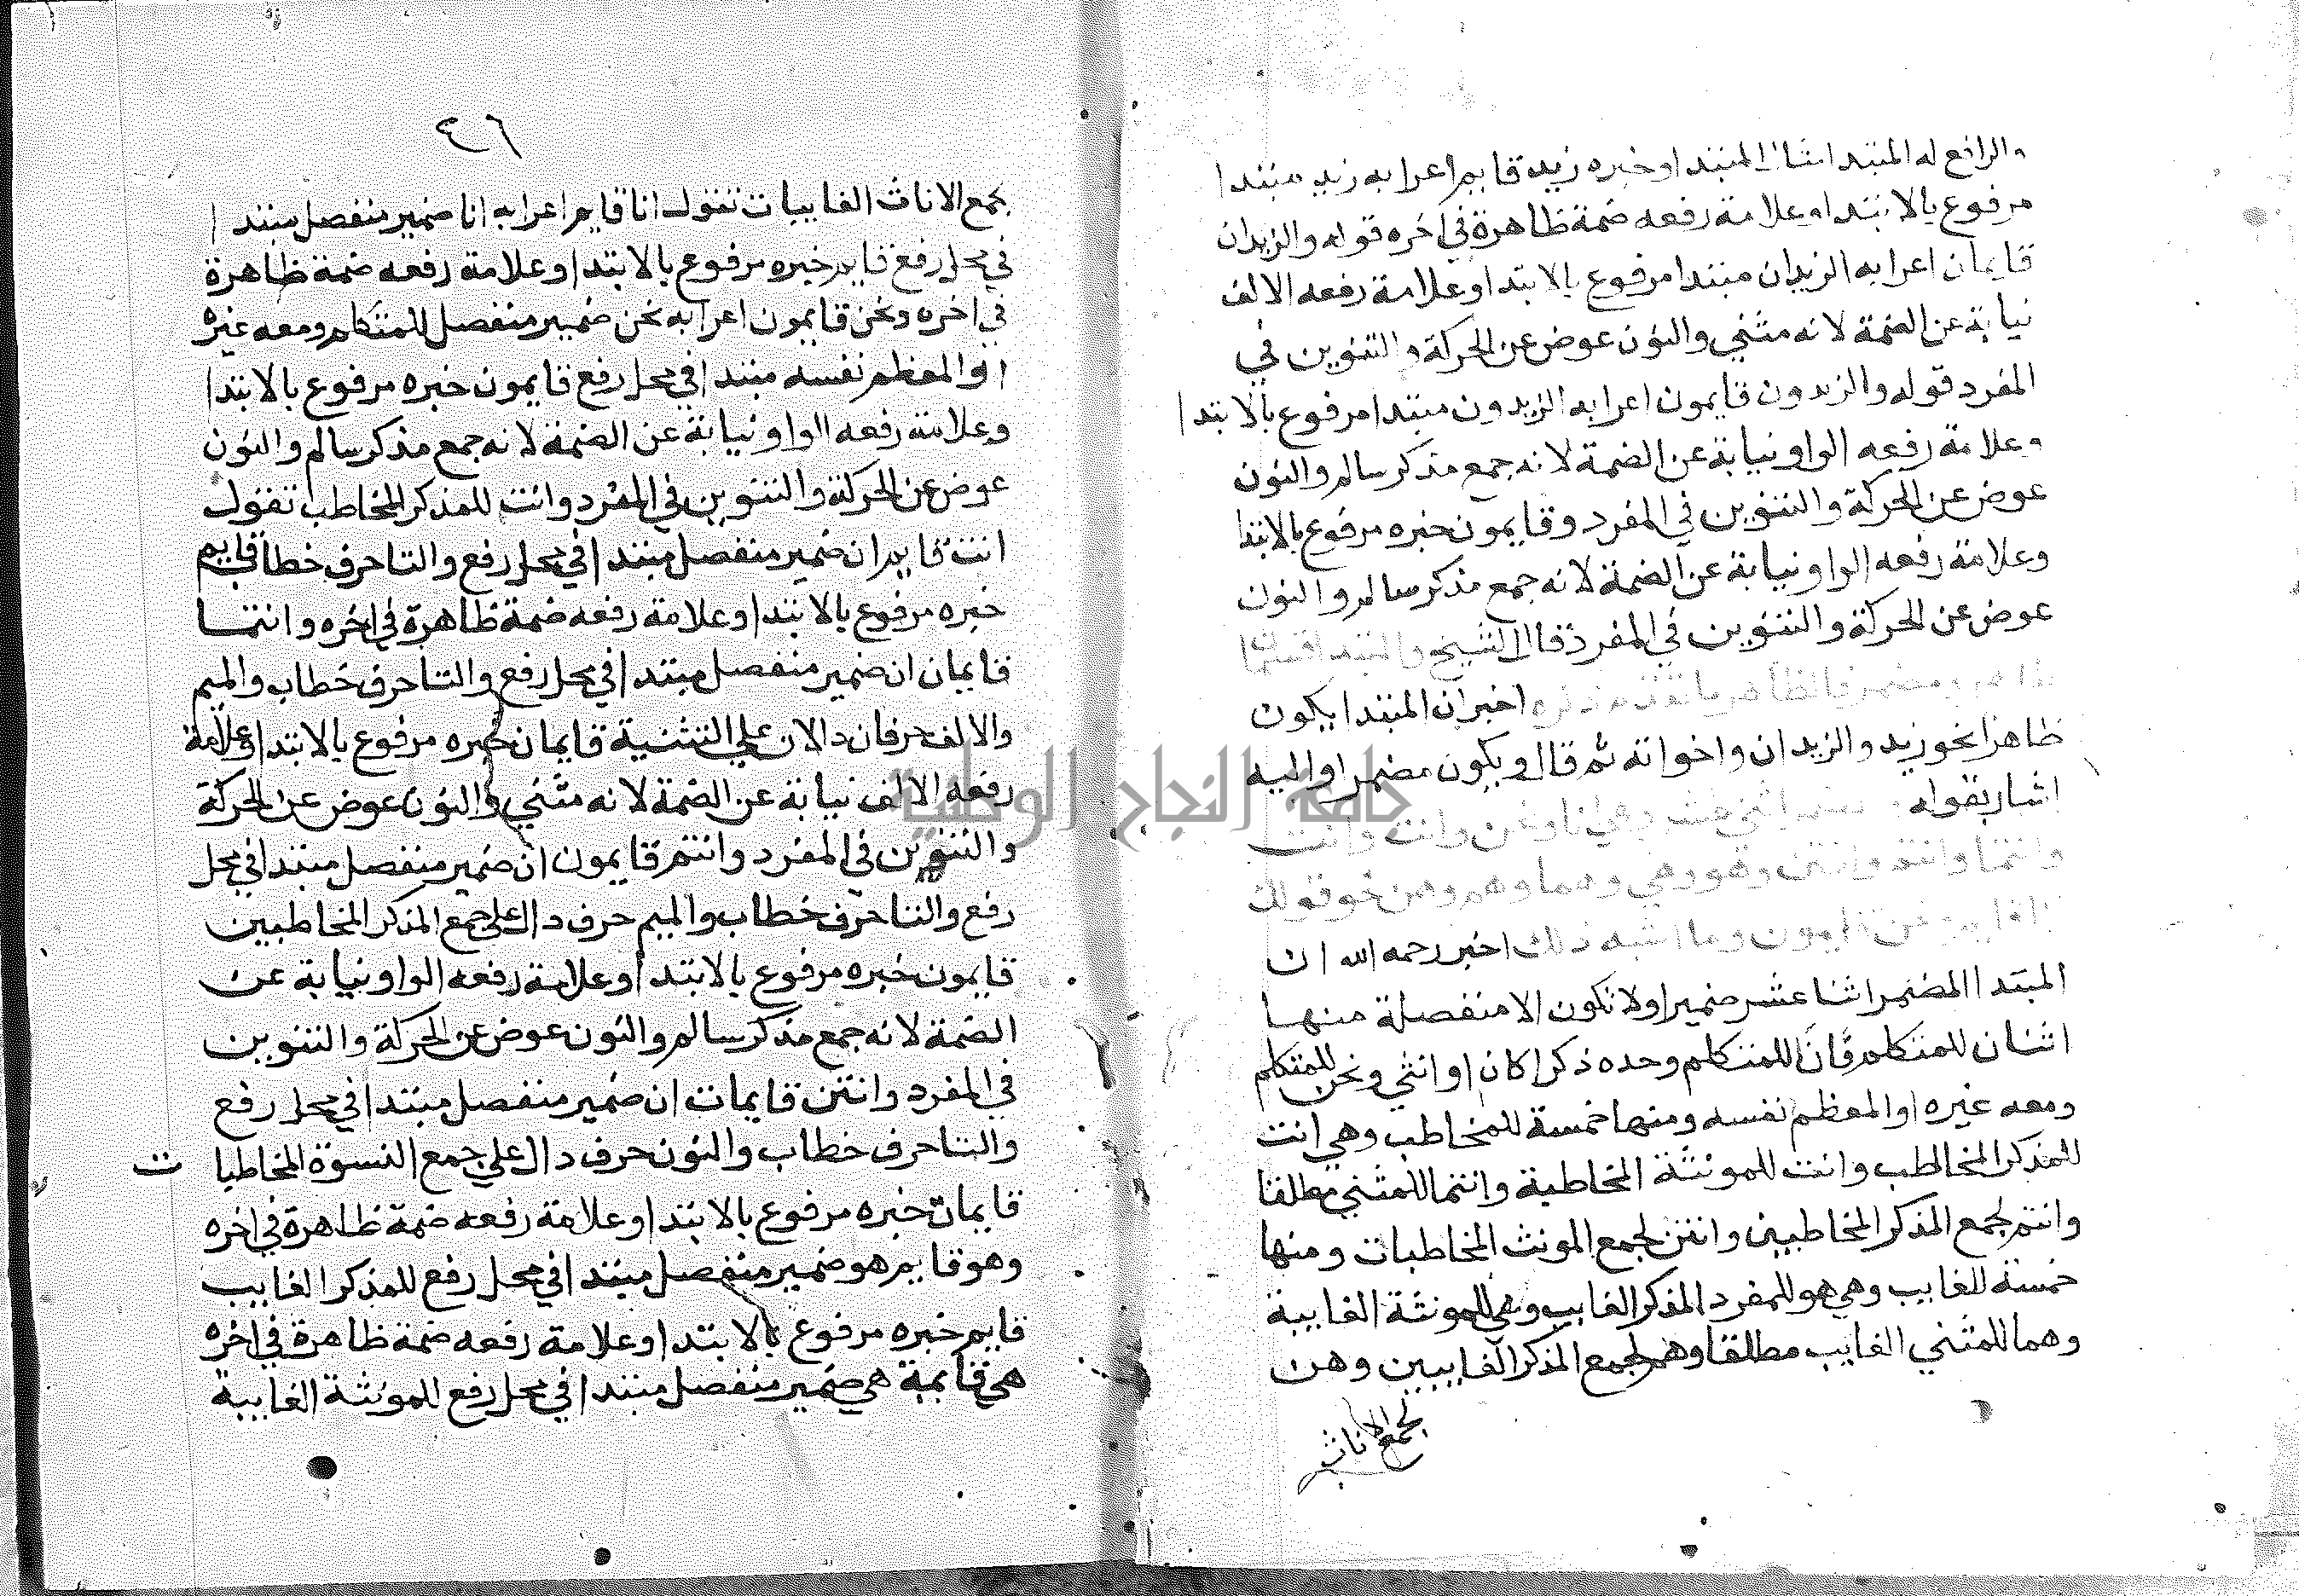 والرافع له المبتدا مثال المبتدا وخبره زيد قايم اعرابه زيد مبتدا
مرفوع بالابتدا وعلامة رفعه ضمة ظاهرة في اخره قوله والزيدان
قايمان اعرابه الزيدان مبتدا مرفوع بالابتدا وعلامة رفعه الالف
نيابة عن الضمة لانه مثني والنون عوض عن الحركة والتنوين في
المفرد قوله والزيدون قايمون اعرابه الزيدون مبتدا مرفوع بالابتدا
وعلامة رفعه الواو نيابة عن الضمة لانه جمع مذكر سالم والنون
عوض عن الحركة والتنوين في المفرد وقايمون خبره مرفوع بالابتدا
وعلامة رفعه الواو نيابة عن الضمة لانه جمع مذكر سالم والنون
عوض عن الحركة والتنوين في المفرد قال الشيخ والمبتدا قسمان
ظاهر ومضمر فالظاهر ما تقدم ذكره اخبر ان المبتدا يكون
ظاهرا نحو زيد والزيدان واخواته ثم قال ويكون مضمرا واليه
اشار بقوله اثني عشر وهي انا ونحن وانت وانت
وانتما وانتم وانتن وهو وهي وهما وهم وهن نحو قولك
انا قايم ونحن قايمون وما اشبه ذلك اخبر رحمه الله ان
المبتدا المضمر اثنا عشر ضميرا ولا تكون الا منفصلة منها
اثنان للمتكلم فان للمتكلم وحده ذكرا كان او انثي ونحن للمتكلم
ومعه غيره او المعظم نفسه ومنها خمسة للمخاطب وهي انت
للمذكر المخاطب وانت للمونثة المخاطبة وانتما للمثني مطلقا
وانتم لجمع المذكر المخاطبين وانتن لجمع المونث المخاطبات ومنها
خمسة للغايب وهي هو للمفرد المذكر الغايب وهي للمونثة الغايبة
وهما للمثني الغايب مطلقا وهم لجمع المذكر الغايبين وهن
لجمع الاناث
٢٦
لجمع الاناث الغايبات تقول انا قايم اعرابه انا ضمير منفصل مبتدا
في محل رفع قايم خبره مرفوع بالابتدا وعلامة رفعه ضمة ظاهرة
في اخره ونحن قايمون اعرابه نحن ضمير منفصل للمتكلم ومعه غيره
او المعظم نفسه مبتدا في محل رفع قايمون خبره مرفوع بالابتدا
وعلامة رفعه الواو نيابة عن الضمة لانه جمع مذكر سالم والنون
عوض عن الحركة والتنوين في المفرد وانت للمذكر المخاطب تقول
انت قايم ان ضمير منفصل مبتدا في محل رفع والتا حرف خطاب قايم
خبره مرفوع بالابتدا وعلامة رفعه ضمة ظاهرة في اخره وانتما
قايمان ان ضمير منفصل مبتدا في محل رفع والتا حرف خطاب والميم
والالف حرفان دالان علي التثنية قايمان خبره مرفوع بالابتدا وعلامة
رفعه الالف نيابة عن الضمة لانه مثني والنون عوض عن الحركة
والتنوين في المفرد وانتم قايمون ان ضمير منفصل مبتدا في محل
رفع والتا حرف خطاب والميم حرف دال علي جمع المذكر المخاطبين
قايمون خبره مرفوع بالابتدا وعلامة رفعه الواو نيابة عن
الضمة لانه جمع مذكر سالم والنون عوض عن الحركة والتنوين
في المفرد وانتن قايمات ان ضمير منفصل مبتدا في محل رفع
والتا حرف خطاب والنون حرف دال علي جمع النسوة المخاطبات
قايمات خبره مرفوع بالابتدا وعلامة رفعه ضمة ظاهرة في اخره
وهو قايم هو ضمير منفصل مبتدا في محل رفع للمذكر الغايب
قايم خبره مرفوع بالابتدا وعلامة رفعه ضمة ظاهرة في اخره
هي قايمة هي ضمير منفصل مبتدا في محل رفع للمونثة الغايبة
جامعة النجاح الوطنية